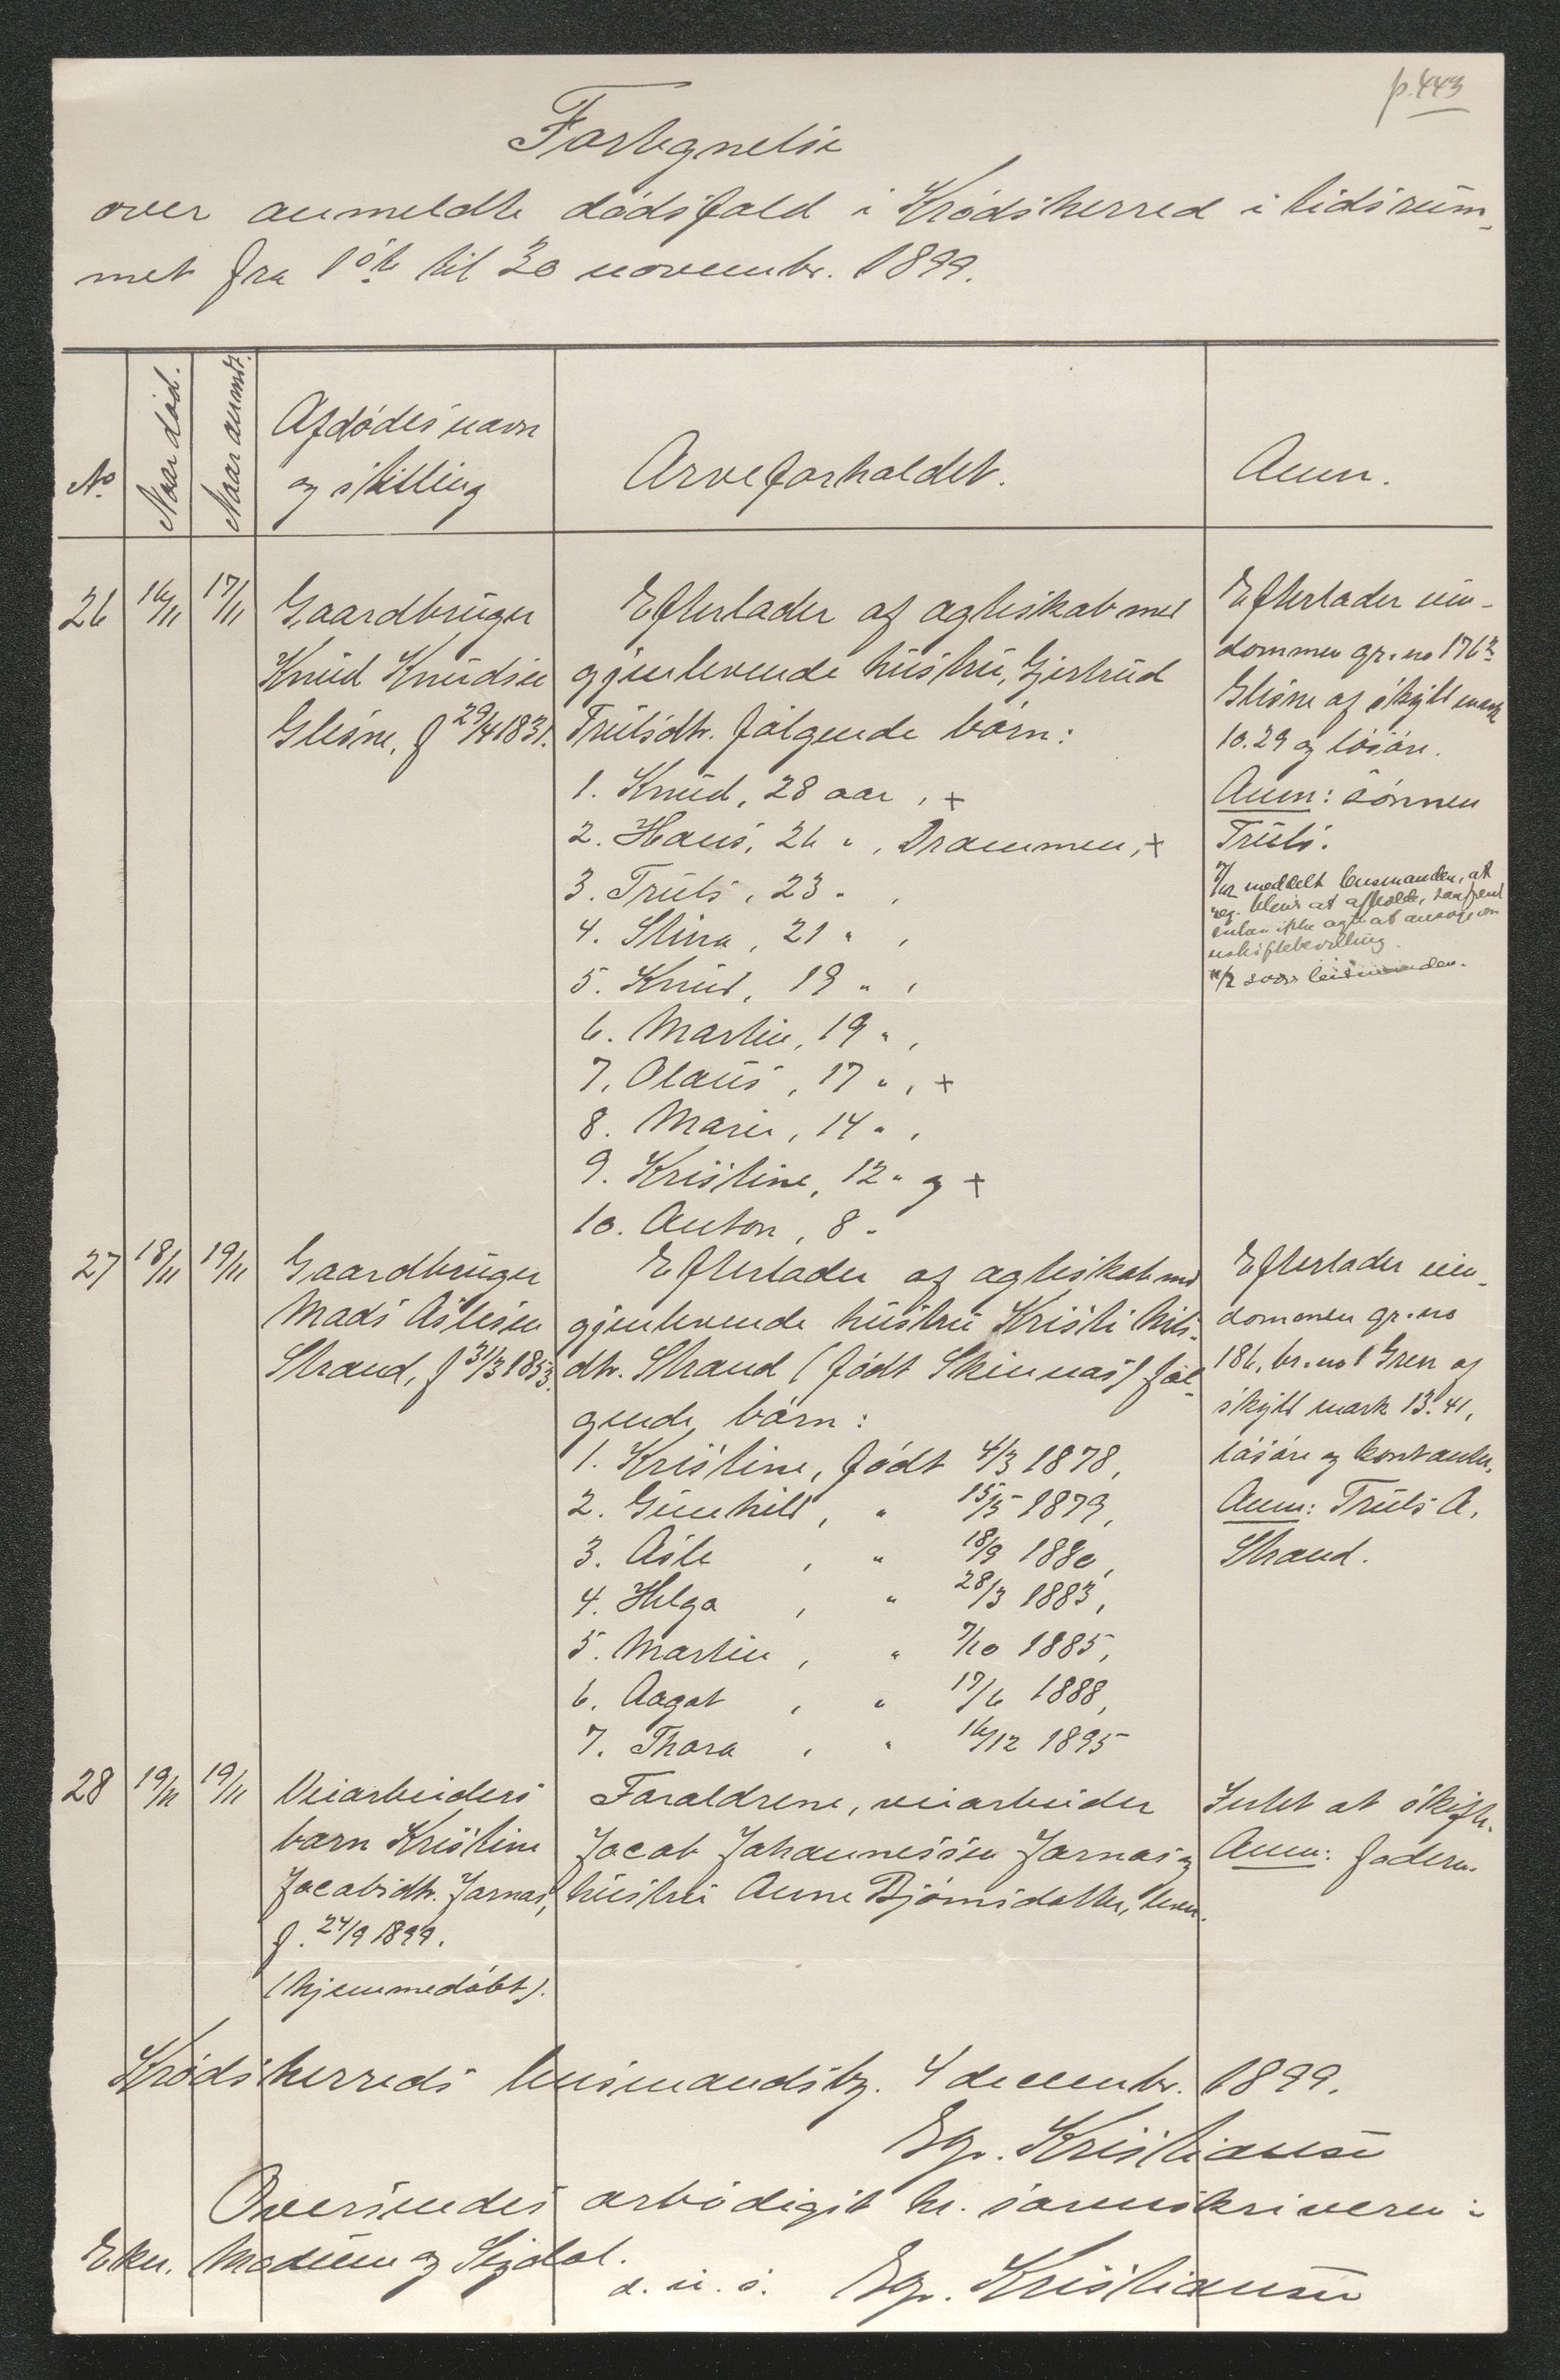 p. 443
Fortegnelse
over anmeldte dødsfald i Krødsherred i tidsrum-
met fra 1ste til 30 novembr. 1899.
No
Naar død.
Naar anmdt.
Afdødes navn
og stilling
Arveforholdet.
Anm.
26
16/11
17/11
Gaardbruger
Knud Knudsen
Glesne, f 29/4 1831.
Efterlader af ægteskab med
gjenlevende hustru, Gjertrud
Trulsdtr. følgende børn:
1. Knud, 28 aar, +
2. Hans, 26 " , Drammen, +
3. Truls, 23 " ,
4. Stina, 21 " ,
5. Knud, 19 " ,
6. Martin, 19 " ,
7. Olaus, 17 " , +
8. Marie, 14 " ,
9. Kristine, 12 " og +
10. Anton, 8 "
Efterlader eien-
dommen gr. no 176
Glesne af skyld mark
10.29 og løsøre.
Anm: sønnen
Truls.
7/12 meddelt lensmanden, at
reg. bliver at afholde, saafremt
enken ikke agter at ansøge om
uskiftebevilling.
27
18/11
19/11
Gaardbruger
Mads Aslesen
Strand, f 31/3 1853.
Efterlader af ægteskab med
gjenlevende hustru Kristi Nils-
dtr. Strand (født Skinnæs) føl-
gende børn:
1. Kristine, født 4/3 1878,
2. Gunhild, " 15/5 1879,
3. Asle , " 18/9 1880,
4. Helga , " 28/3 1883,
5. Martin , " 7/10 1885,
6. Aagot , " 17/6 1888,
7. Thora , " 16/12 1895
Efterlader eien-
dommen gr. no
186, br. no 1 Green af
skyld mark 13.41,
løsøre og kontanter.
Anm: Truls A.
Strand.
28
19/11
19/11
Veiarbeiders
barn Kristine
Jacobsdtr. Jarnæs,
f. 24/9 1899.
(hjemmedøbt).
Forældrene, veiarbeider
Jacob Johannessen Jarnæs og
hustru Anne Bjørnsdatter, lever.
Intet at skifte.
Anm: faderen.
Krødsherreds lensmandsbg. 4 decembr. 1899.
Eg. Kristiansen
Oversendes ærbødigst hr. sorenskriveren i
Eker, Modum og Sigdal.
d. u. s. Eg. Kristiansen